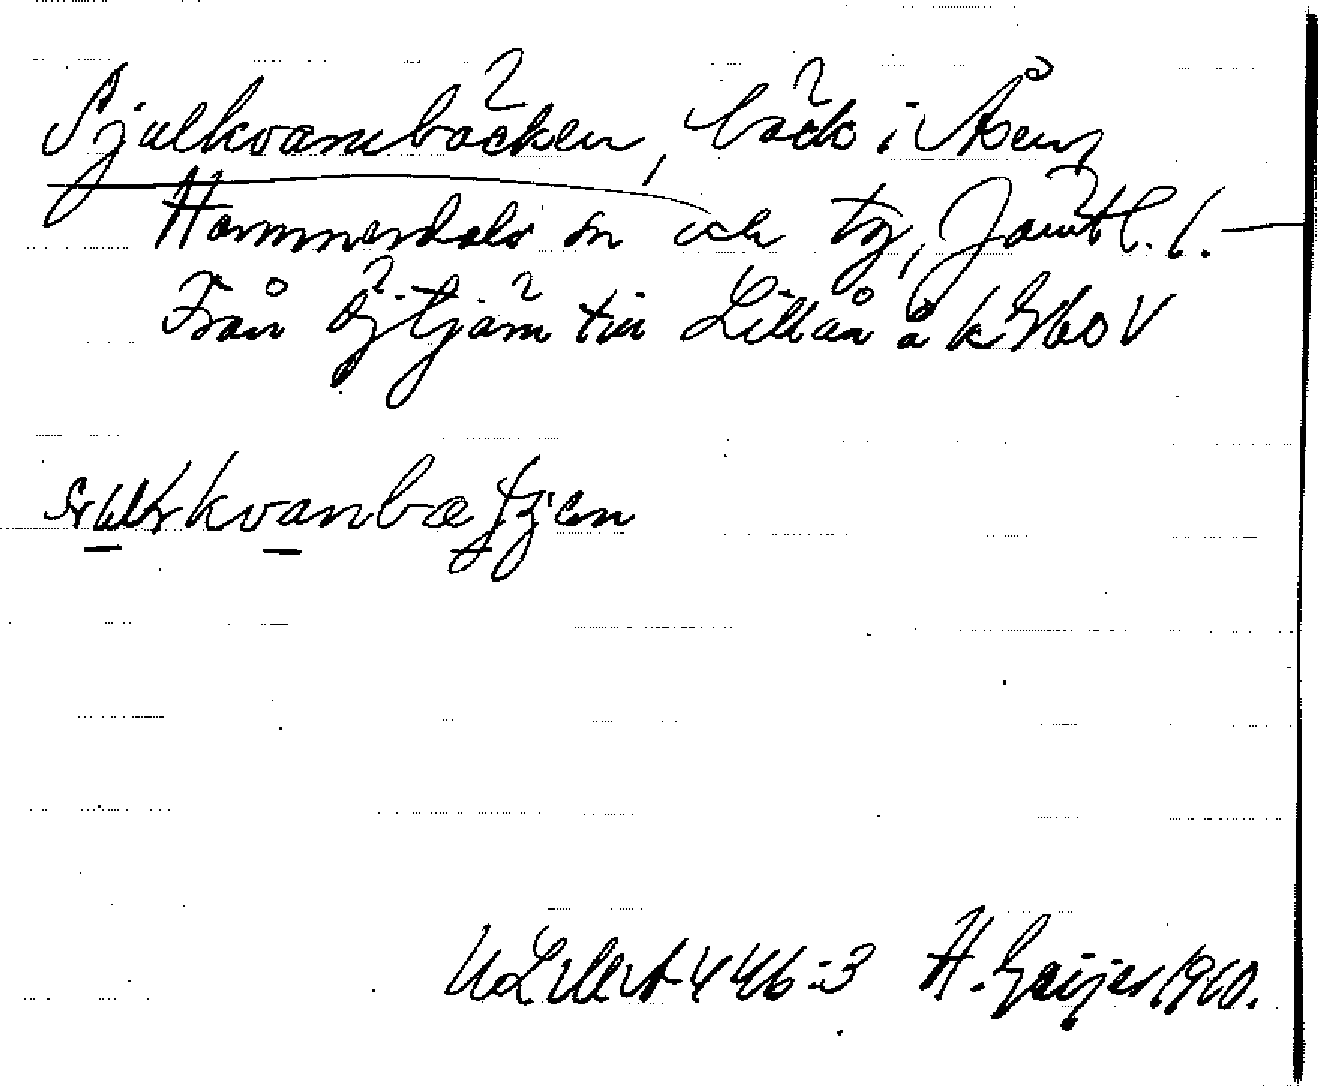 Sjulkvarnbäcken, bäck i Åsen,
Hammerdals sn och tg, Jämtl. l. —
Från Öjtjärn till Lillån å k 360 V
kvanbæ
ULMA 446:3 H. Geijer 1910.